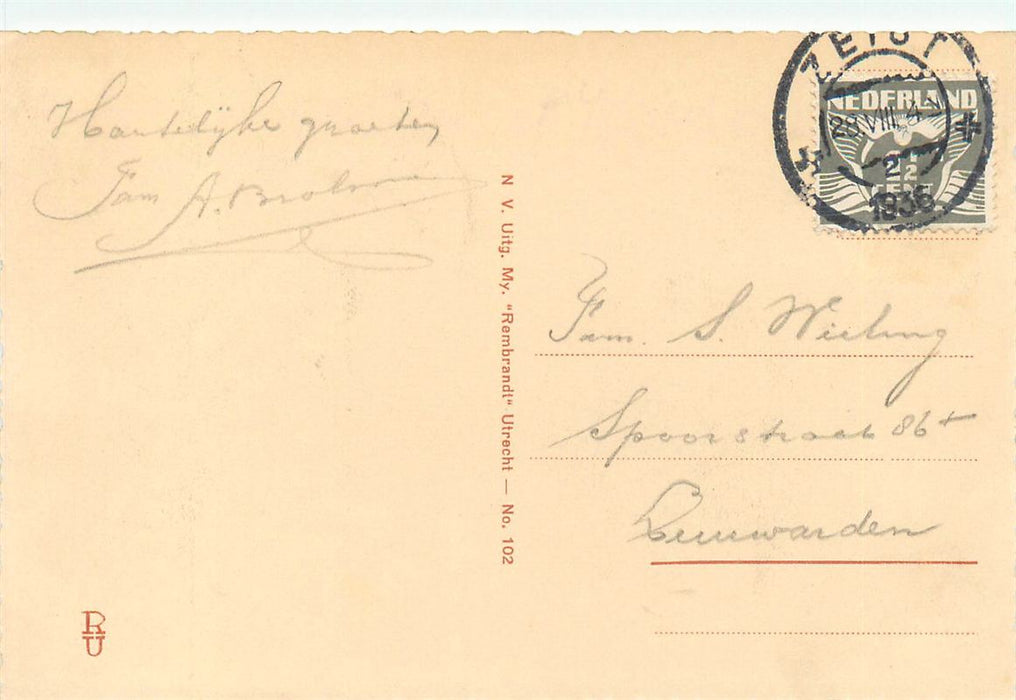 Hartelijke groeten
Fam A.
N V. Uitg. My. "Rembrandt" Utrecht — No. 102
R
U
ZEIST
NEDERLAND
28 VIII
2½
CENT
1936
Fam. S. Wieling
Spoorstraat 86
Leeuwarden